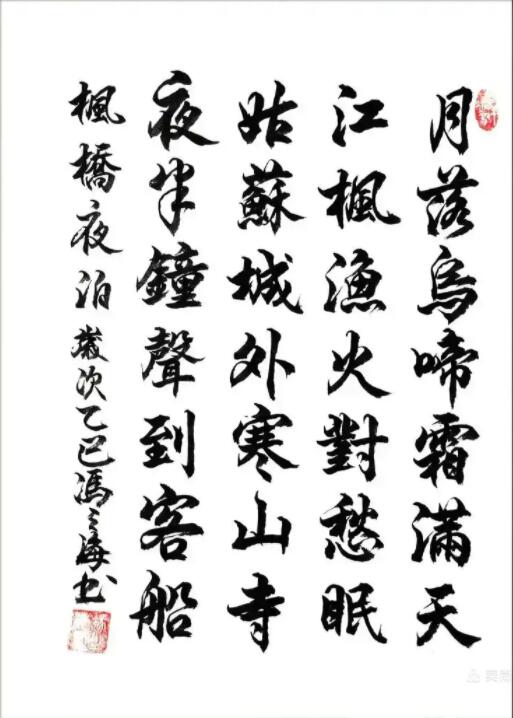 月落烏啼霜滿天
江楓漁火對愁眠
姑蘇城外寒山寺
夜半鐘聲到客船
楓橋夜泊 歲次乙巳馮之海書